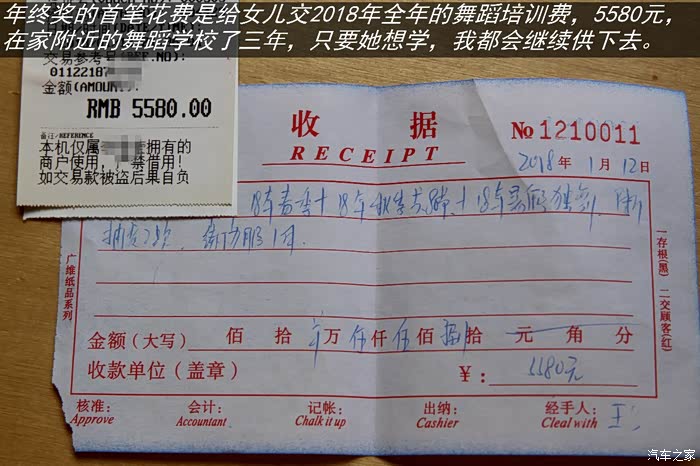 年终奖的首笔花费是给女儿交2018年全年的舞蹈培训费，5580元，
在家附近的舞蹈学校了三年，只要她想学，我都会继续供下去。
交易参考号(REF.NO):
01122187
金额(AMOUNT):
RMB 5580.00
备注/REFERENCE
本机仅属 拥有的
商户使用, 禁借用!
如交易款被盗后果自负
收 据
RECEIPT
No 1210011
2018年 1月 12日
18年春季+18年秋季
广维纸品系列
一存根(黑) 二交顾客(红)
金额（大写） 佰 拾 万 伍仟 伍佰 捌拾 元 角 分
收款单位（盖章） ¥: 5580元
核准: 会计: 记帐: 出纳: 经手人: 王
Approve Accountant Chalk it up Cashier Cleal with
汽车之家